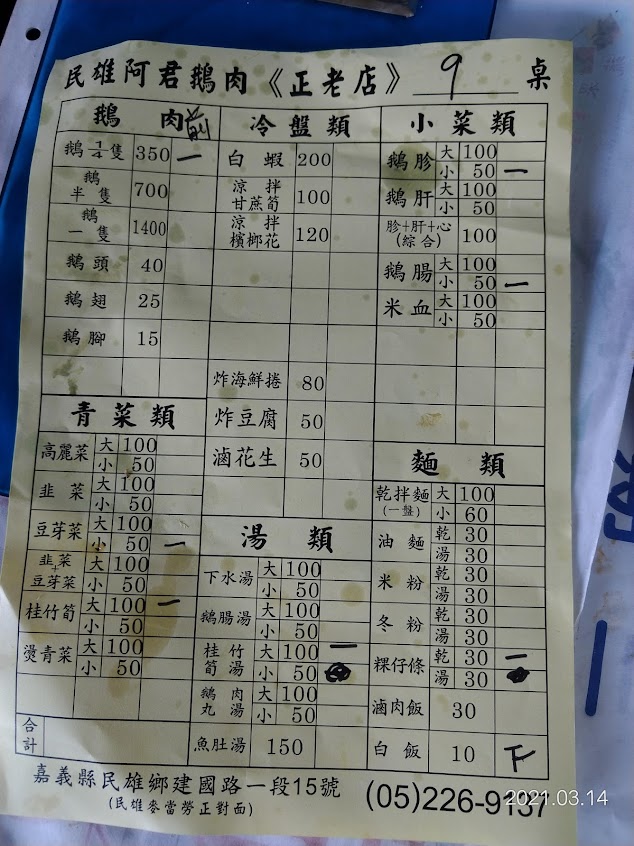 民雄阿君鵝肉《正老店》 9 桌
鵝肉 前
鵝¼隻 350 一
鵝半隻 700
鵝一隻 1400
鵝頭 40
鵝翅 25
鵝腳 15
冷盤類
白蝦 200
涼拌甘蔗筍 100
涼拌檳榔花 120
炸海鮮捲 80
炸豆腐 50
滷花生 50
小菜類
鵝胗 大 100
小 50 一
鵝肝 大 100
小 50
胗+肝+心(綜合) 100
鵝腸 大 100
小 50 一
米血 大 100
小 50
青菜類
高麗菜 大 100
小 50
韭菜 大 100
小 50
豆芽菜 大 100
小 50 一
韭菜+豆芽菜 大 100
小 50
桂竹筍 大 100 一
小 50
燙青菜 大 100
小 50
合計
湯類
下水湯 大 100
小 50
鵝腸湯 大 100
小 50
桂竹筍湯 大 100 一
小 50
鵝肉丸湯 大 100
小 50
魚肚湯 150
麵類
乾拌麵(一盤) 大 100
小 60
油麵 乾 30
湯 30
米粉 乾 30
湯 30
冬粉 乾 30
湯 30
粿仔條 乾 30 一
湯 30
滷肉飯 30
白飯 10 下
嘉義縣民雄鄉建國路一段15號 (05)226-9137
(民雄麥當勞正對面)
2021.03.14